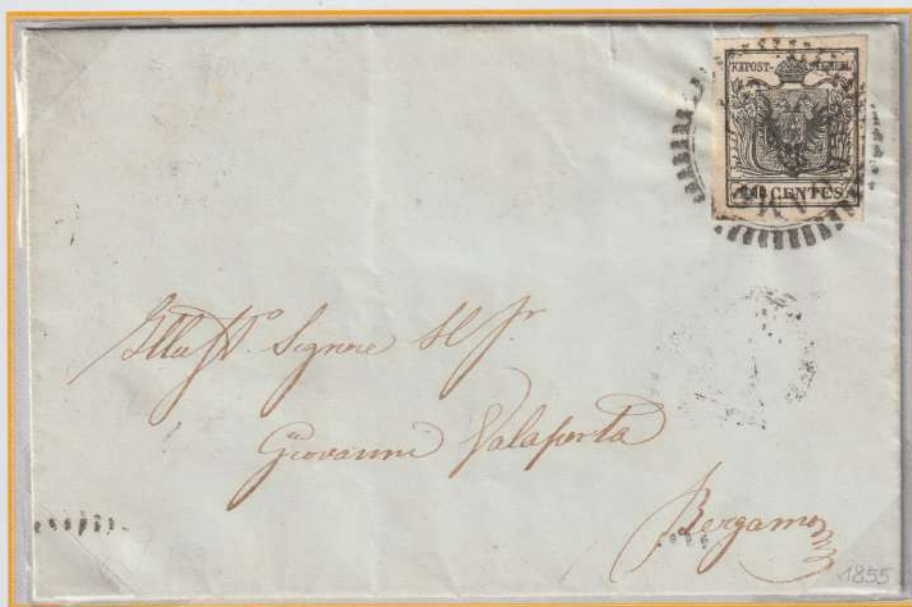 KKPOST-STEMPEL
10 CENTES
Illustr.o Signore Il Sr
Giovanni Valaperta
Bergamo
1855